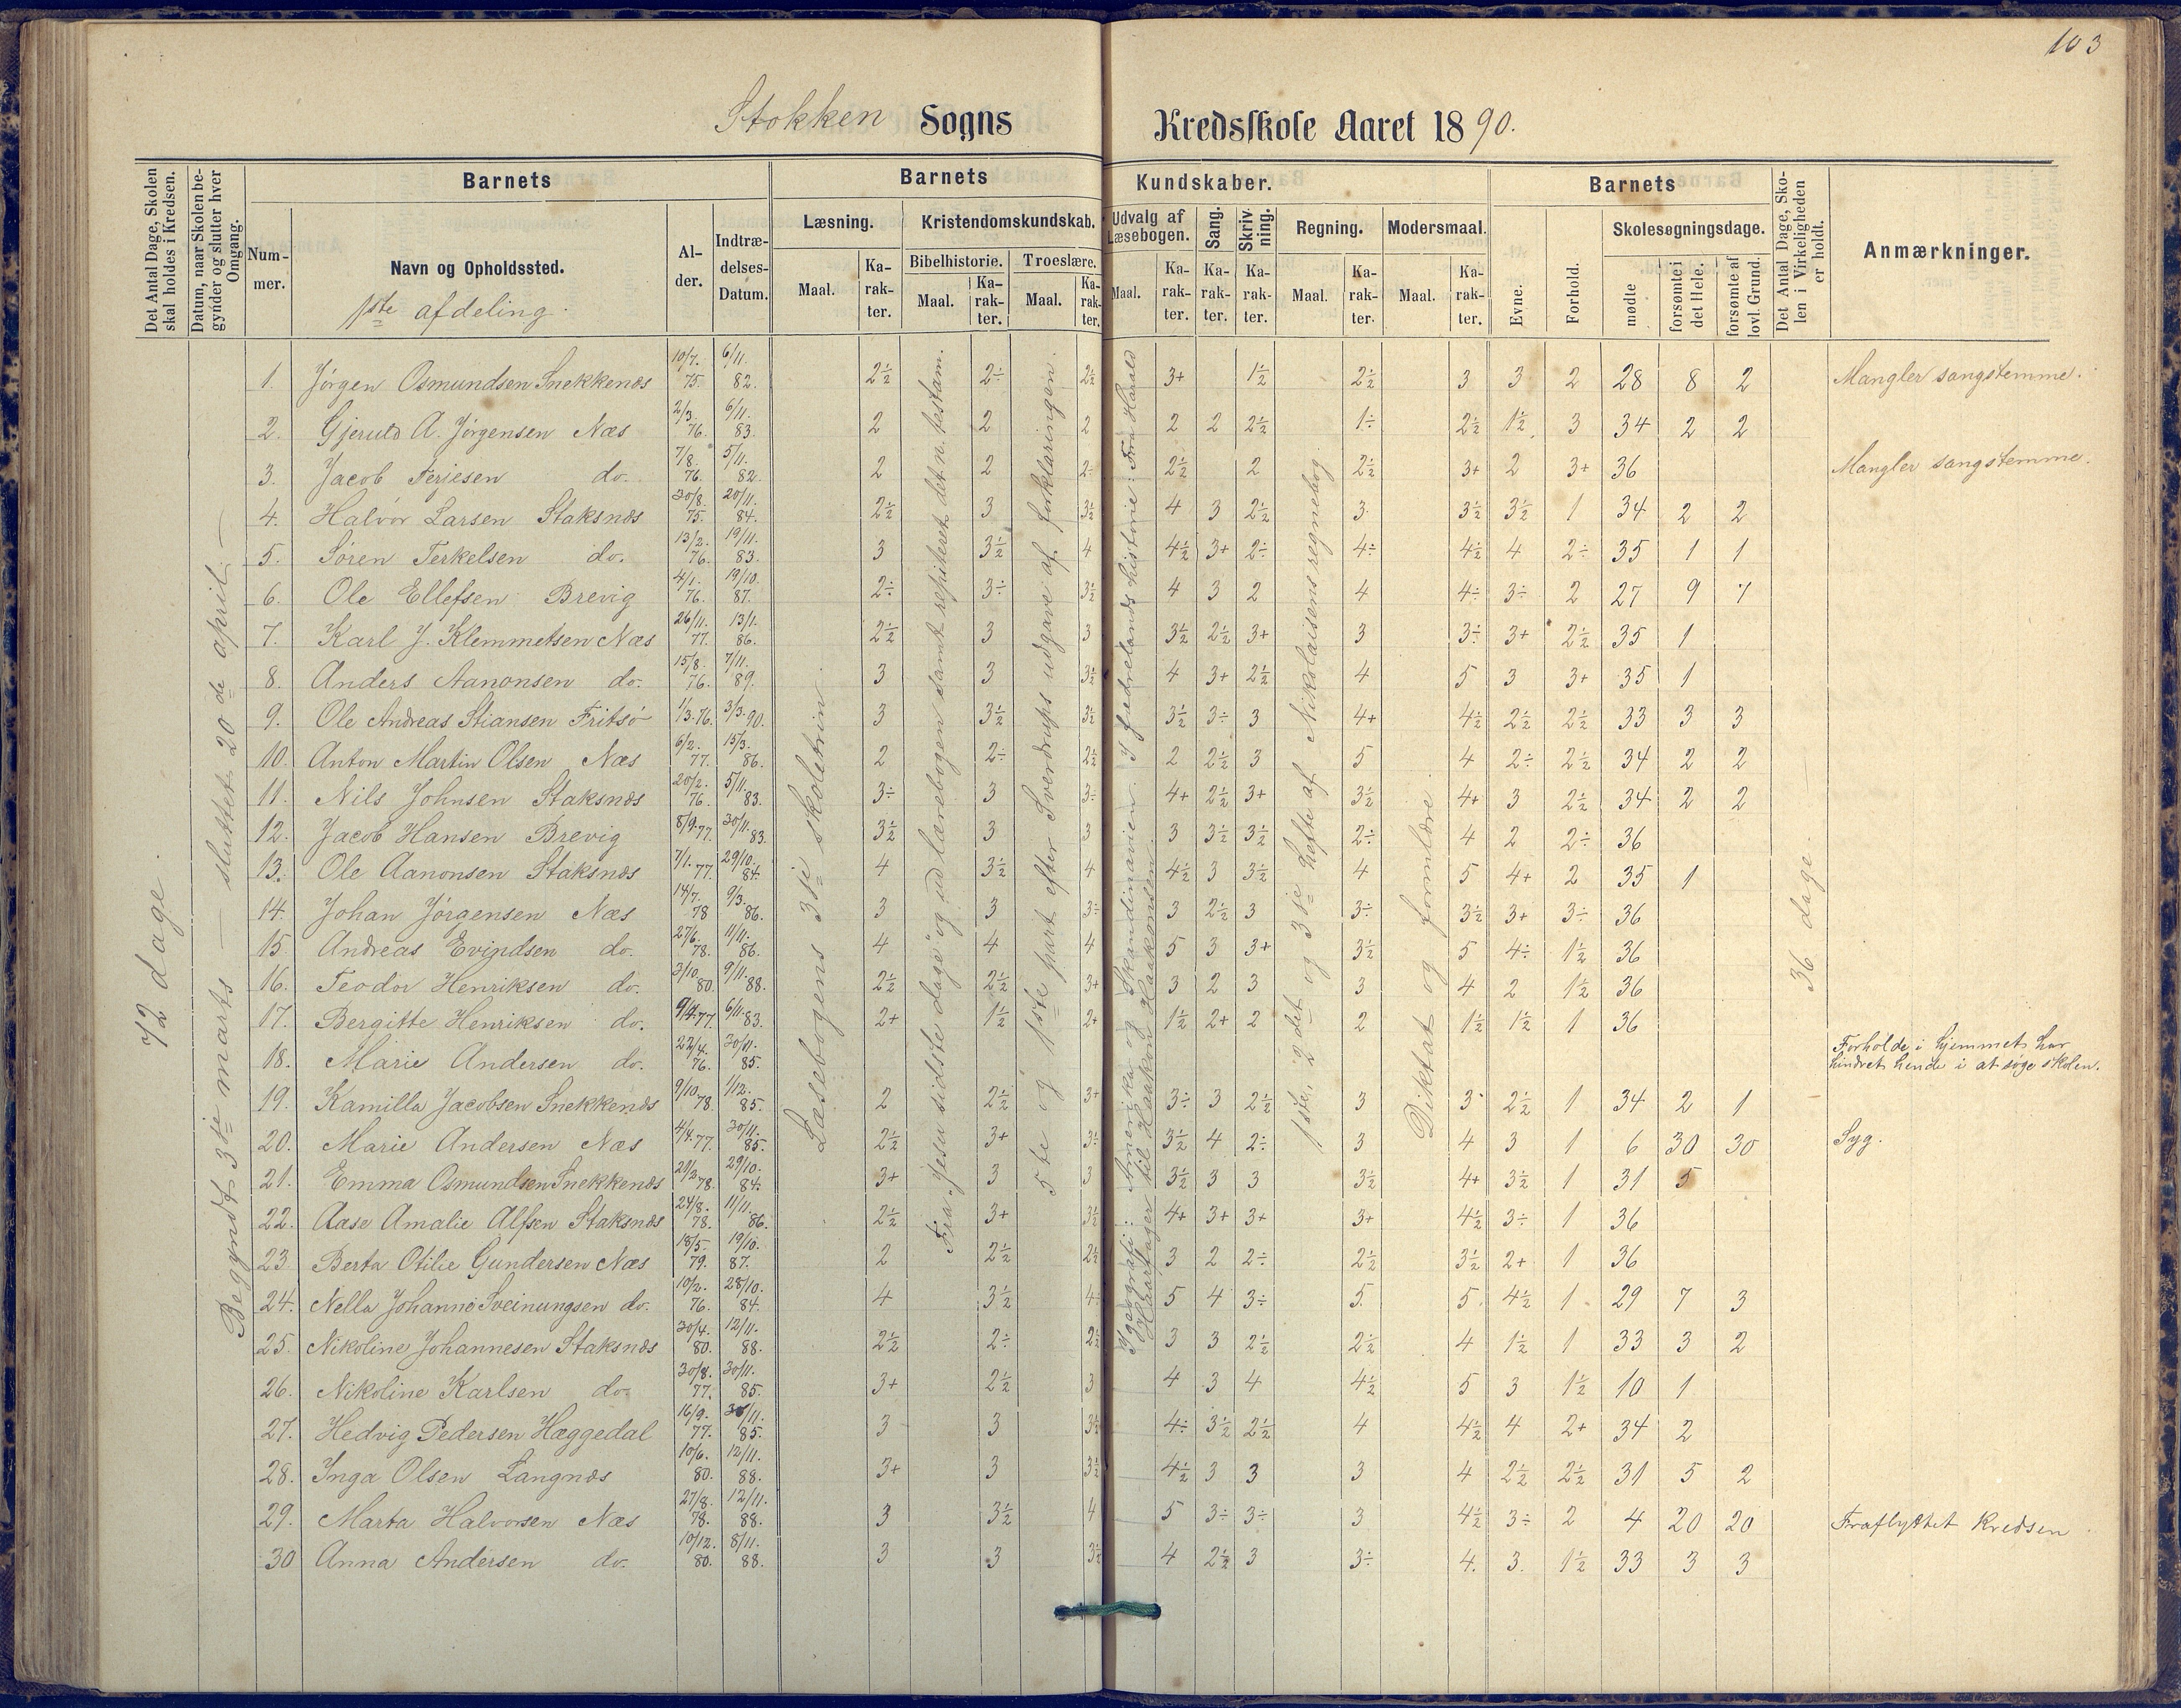 103
Stokken Sogns Kredsskole Aaret 1890.
Det Antal Dage, Skolen skal holdes i Kredsen.
Datum, naar Skolen begynder og slutter hver Omgang.
Barnets
Nummer.
Navn og Opholdssted.
1ste afdeling.
Alder.
Indtrædelses-Datum.
Barnets Kundskaber.
Læsning.
Maal. Karakter.
Kristendomskundskab.
Bibelhistorie. Troeslære.
Maal. Karakter. Maal. Karakter.
Udvalg af Læsebogen.
Maal. Karakter.
Sang. Karakter.
Skrivning. Karakter.
Regning.
Maal. Karakter.
Modersmaal.
Maal. Karakter.
Barnets
Evne. Forhold.
Skolesøgningsdage.
mødte forsømte i det Hele. forsømte af lovl. Grund.
Det Antal Dage, Skolen i Virkeligheden er holdt.
Anmærkninger.
72 dage.
Begyndt 3die marts — sluttet 20de april —
Læsebogens 3die skoletrin.
Fra "Jesu sidste dage" og ud lærebogen samt repititeret det n. testam.
5te og 1ste part efter Sverdrups udgave af forklaringen.
I geografi: Amerika og Skandinavien. I fædrelandshistorie: Fra Harald Haarfager til Haakon Haakonsen.
1ste, 2det og 3die hefte af Nikolaisens regnebog.
Diktat og formlære.
36 dage.
1. Jørgen Osmundsen Snekkenæs 10/7. 75. 6/11. 82. 2½ 2÷ 2½ 3+ 1½ 2½ 3 3 2 28 8 2 Mangler sangstemme.
2. Gjerulð A. Jørgensen Næs 2/3. 76. 6/11. 83. 2 2 2 2 2 2½ 1÷ 2½ 1½ 3 34 2 2
3. Jacob Terjesen do. 7/8. 76. 5/11. 82. 2 2 2÷ 2½ 2 2½ 3+ 2 3+ 36 Mangler sangstemme.
4. Halvor Larsen Staksnæs 30/8. 75. 20/11. 84. 2½ 3 3½ 4 3 2½ 3 3½ 3½ 1 34 2 2
5. Søren Terkelsen do. 13/2. 76. 19/11. 83. 3 3½ 4 4½ 3+ 2÷ 4÷ 4½ 4 2÷ 35 1 1
6. Ole Ellefsen Brevig 4/1. 76. 19/10. 87. 2÷ 3÷ 3½ 4 3 2 4 4÷ 3÷ 2 27 9 7
7. Karl J. Klemmetsen Næs 26/11. 77. 13/1. 86. 2½ 3 3 3½ 2½ 3+ 3 3÷ 3+ 2½ 35 1
8. Anders Aanonsen do. 15/8. 76. 7/11. 89. 3 3 3½ 4 3+ 2½ 4 5 3 3+ 35 1
9. Ole Andreas Stiansen Fritsø 1/3. 76. 3/3. 90. 3 3½ 3½ 3½ 3÷ 3 4+ 4½ 2½ 2½ 33 3 3
10. Anton Martin Olsen Næs 6/2. 77. 15/3. 86. 2 2÷ 2½ 2 2½ 3 5 4 2÷ 2½ 34 2 2
11. Nils Johnsen Staksnæs 20/2. 76. 5/11. 83. 3÷ 3 3÷ 4+ 2½ 3+ 3½ 4+ 3 2½ 34 2 2
12. Jacob Hansen Brevig 8/9. 77. 30/11. 83. 3½ 3 3 3 3½ 3½ 2÷ 4 2 2÷ 36
13. Ole Aanonsen Staksnæs 7/1. 77. 29/10. 84. 4 3½ 4 4½ 3 3½ 4 5 4+ 2 35 1
14. Johan Jørgensen Næs 14/7. 78 9/3. 86. 3 3 3÷ 3 2½ 3 3÷ 3½ 3+ 3÷ 36
15. Andreas Evindsen do. 27/6. 78. 11/11. 86. 4 4 4 5 3 3+ 3½ 5 4÷ 1½ 36
16. Teodor Henriksen do. 3/10. 80 9/11. 88. 2½ 2½ 3+ 3 2 3 3 4 2 1½ 36
17. Bergitte Henriksen do. 9/4. 77. 6/11. 83. 2+ 1½ 2+ 1½ 2+ 2 2 1½ 1½ 1 36
18. Marie Andersen do. 22/4. 76. 30/11. 85. Forholde i hjemmet har hindret hende i at søge skolen.
19. Kamilla Jacobsen Snekkenæs 9/10. 78. 1/12. 85. 2 2½ 3+ 3÷ 3 2½ 3 3 2½ 1 34 2 1
20. Marie Andersen Næs 4/4. 77. 30/11. 85. 2½ 3+ 3÷ 3½ 4 2÷ 3 4 3 1 6 30 30 Syg.
21. Emma Osmundsen Snekkenæs 29/3 78. 29/10. 84. 3+ 3 3 3½ 3 3 3½ 4+ 3½ 1 31 5
22. Aase Amalie Alfsen Staksnæs 24/8. 78. 11/11. 86. 2½ 3+ 3½ 4+ 3+ 3+ 3+ 4½ 3÷ 1 36
23. Berta Otilie Gundersen Næs 18/5. 79. 19/10. 87. 2 2½ 2½ 3 2 2÷ 2½ 3½ 2+ 1 36
24. Nella Johanne Sveinungsen do. 10/2. 76. 28/10. 84. 4 3½ 4÷ 5 4 3÷ 5 5 4½ 1 29 7 3
25. Nikoline Johannesen Staksnæs 30/4. 80. 12/11. 88. 2½ 2÷ 2½ 3 3 2½ 2½ 4 1½ 1 33 3 2
26. Nikoline Karlsen do. 30/8. 77. 30/11. 85. 3+ 2½ 3 4 3 4 4½ 5 3 1½ 10 1
27. Hedvig Pedersen Hæggedal 16/9. 77. 30/11. 85. 3 3 3½ 4÷ 3½ 2½ 4 4½ 4 2+ 34 2
28. Inga Olsen Langnæs 10/6. 80. 12/11. 88. 3+ 3 3½ 4½ 3 3 3 4 2½ 2½ 31 5 2
29. Marta Halvorsen Næs 27/8. 78. 12/11. 88. 3 3½ 4 5 3÷ 3÷ 3 4½ 3÷ 2 4 20 20 Fraflyttet Kredsen
30 Anna Andersen do. 10/12. 80. 8/11. 88. 3 3 3½ 4 2½ 3 3÷ 4. 3. 1½ 33 3 3